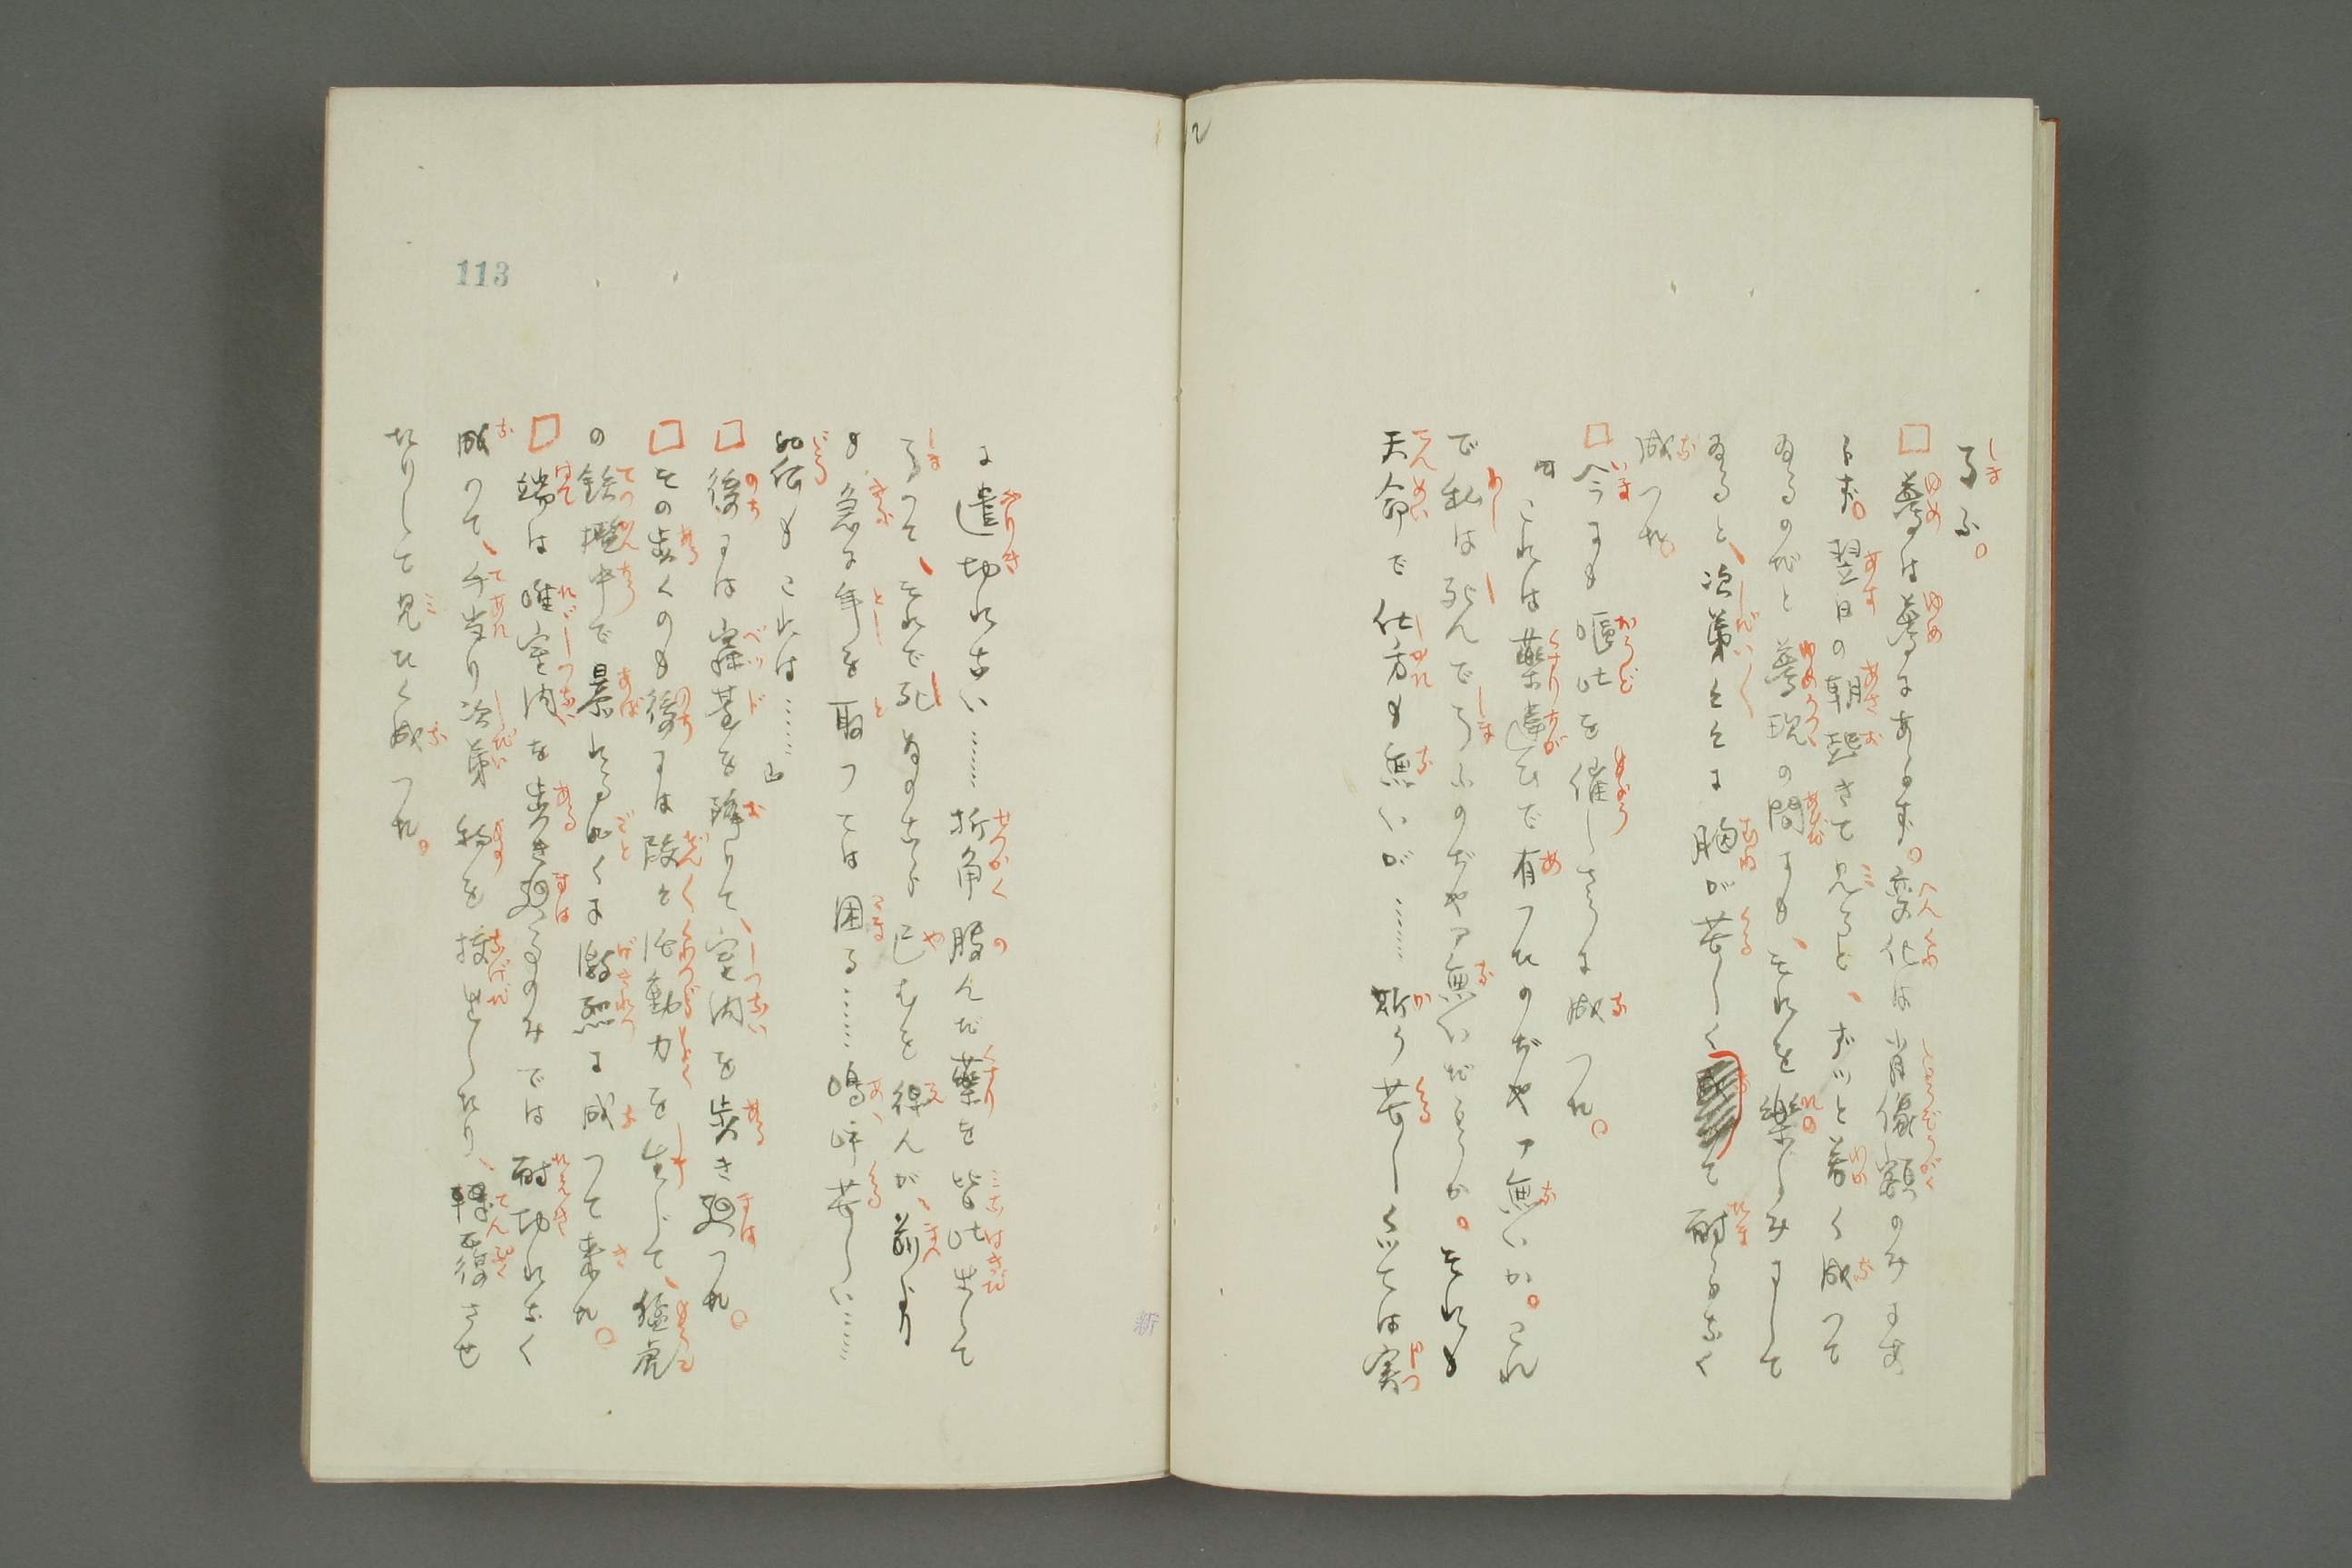 了ふ。
□夢は夢にあらず。変化は肖像額のみにあ
らず。翌日の朝起きて見ると、ずッと若く成つて
ゐるのだと夢現の間にも、それを楽しみにして
ゐると、次第々々に胸が苦しくて耐らなく
成つた。
□今にも嘔吐を催しさうに成つた。
『これは薬違ひで有つたのぢやア無いか。これ
で私は死んで了ふのぢやア無いだらうか。それも
天命で仕方も無いが……斯う苦しくツては実
に遣切れない……折角服んだ薬を皆吐出して
了つて、それで死ぬのなら已むを得んが、前より
も急に年を取つては困る……嗚呼苦しい……
如何もこれは……』
□後には寝台を降りて、室内を歩き廻つた。
□その歩くのも後には段々活動力を生じて、猛虎
の鉄檻中で暴れる如くに激烈に成つて来た。
□端は唯室内を歩き廻るのみでは耐切れなく
成つて、手当り次第物を投出したり、転覆させ
たりして見たく成つた。
113
新